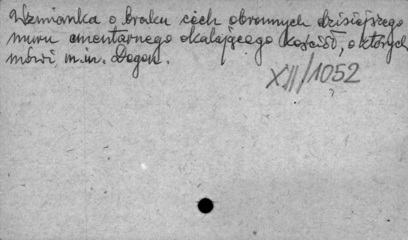 Wzmianka o braku cech obronnych dzisiejszego
muru cmentarnego okalającego kościół, o których
mówi m.in. Dogon.
XII/1052